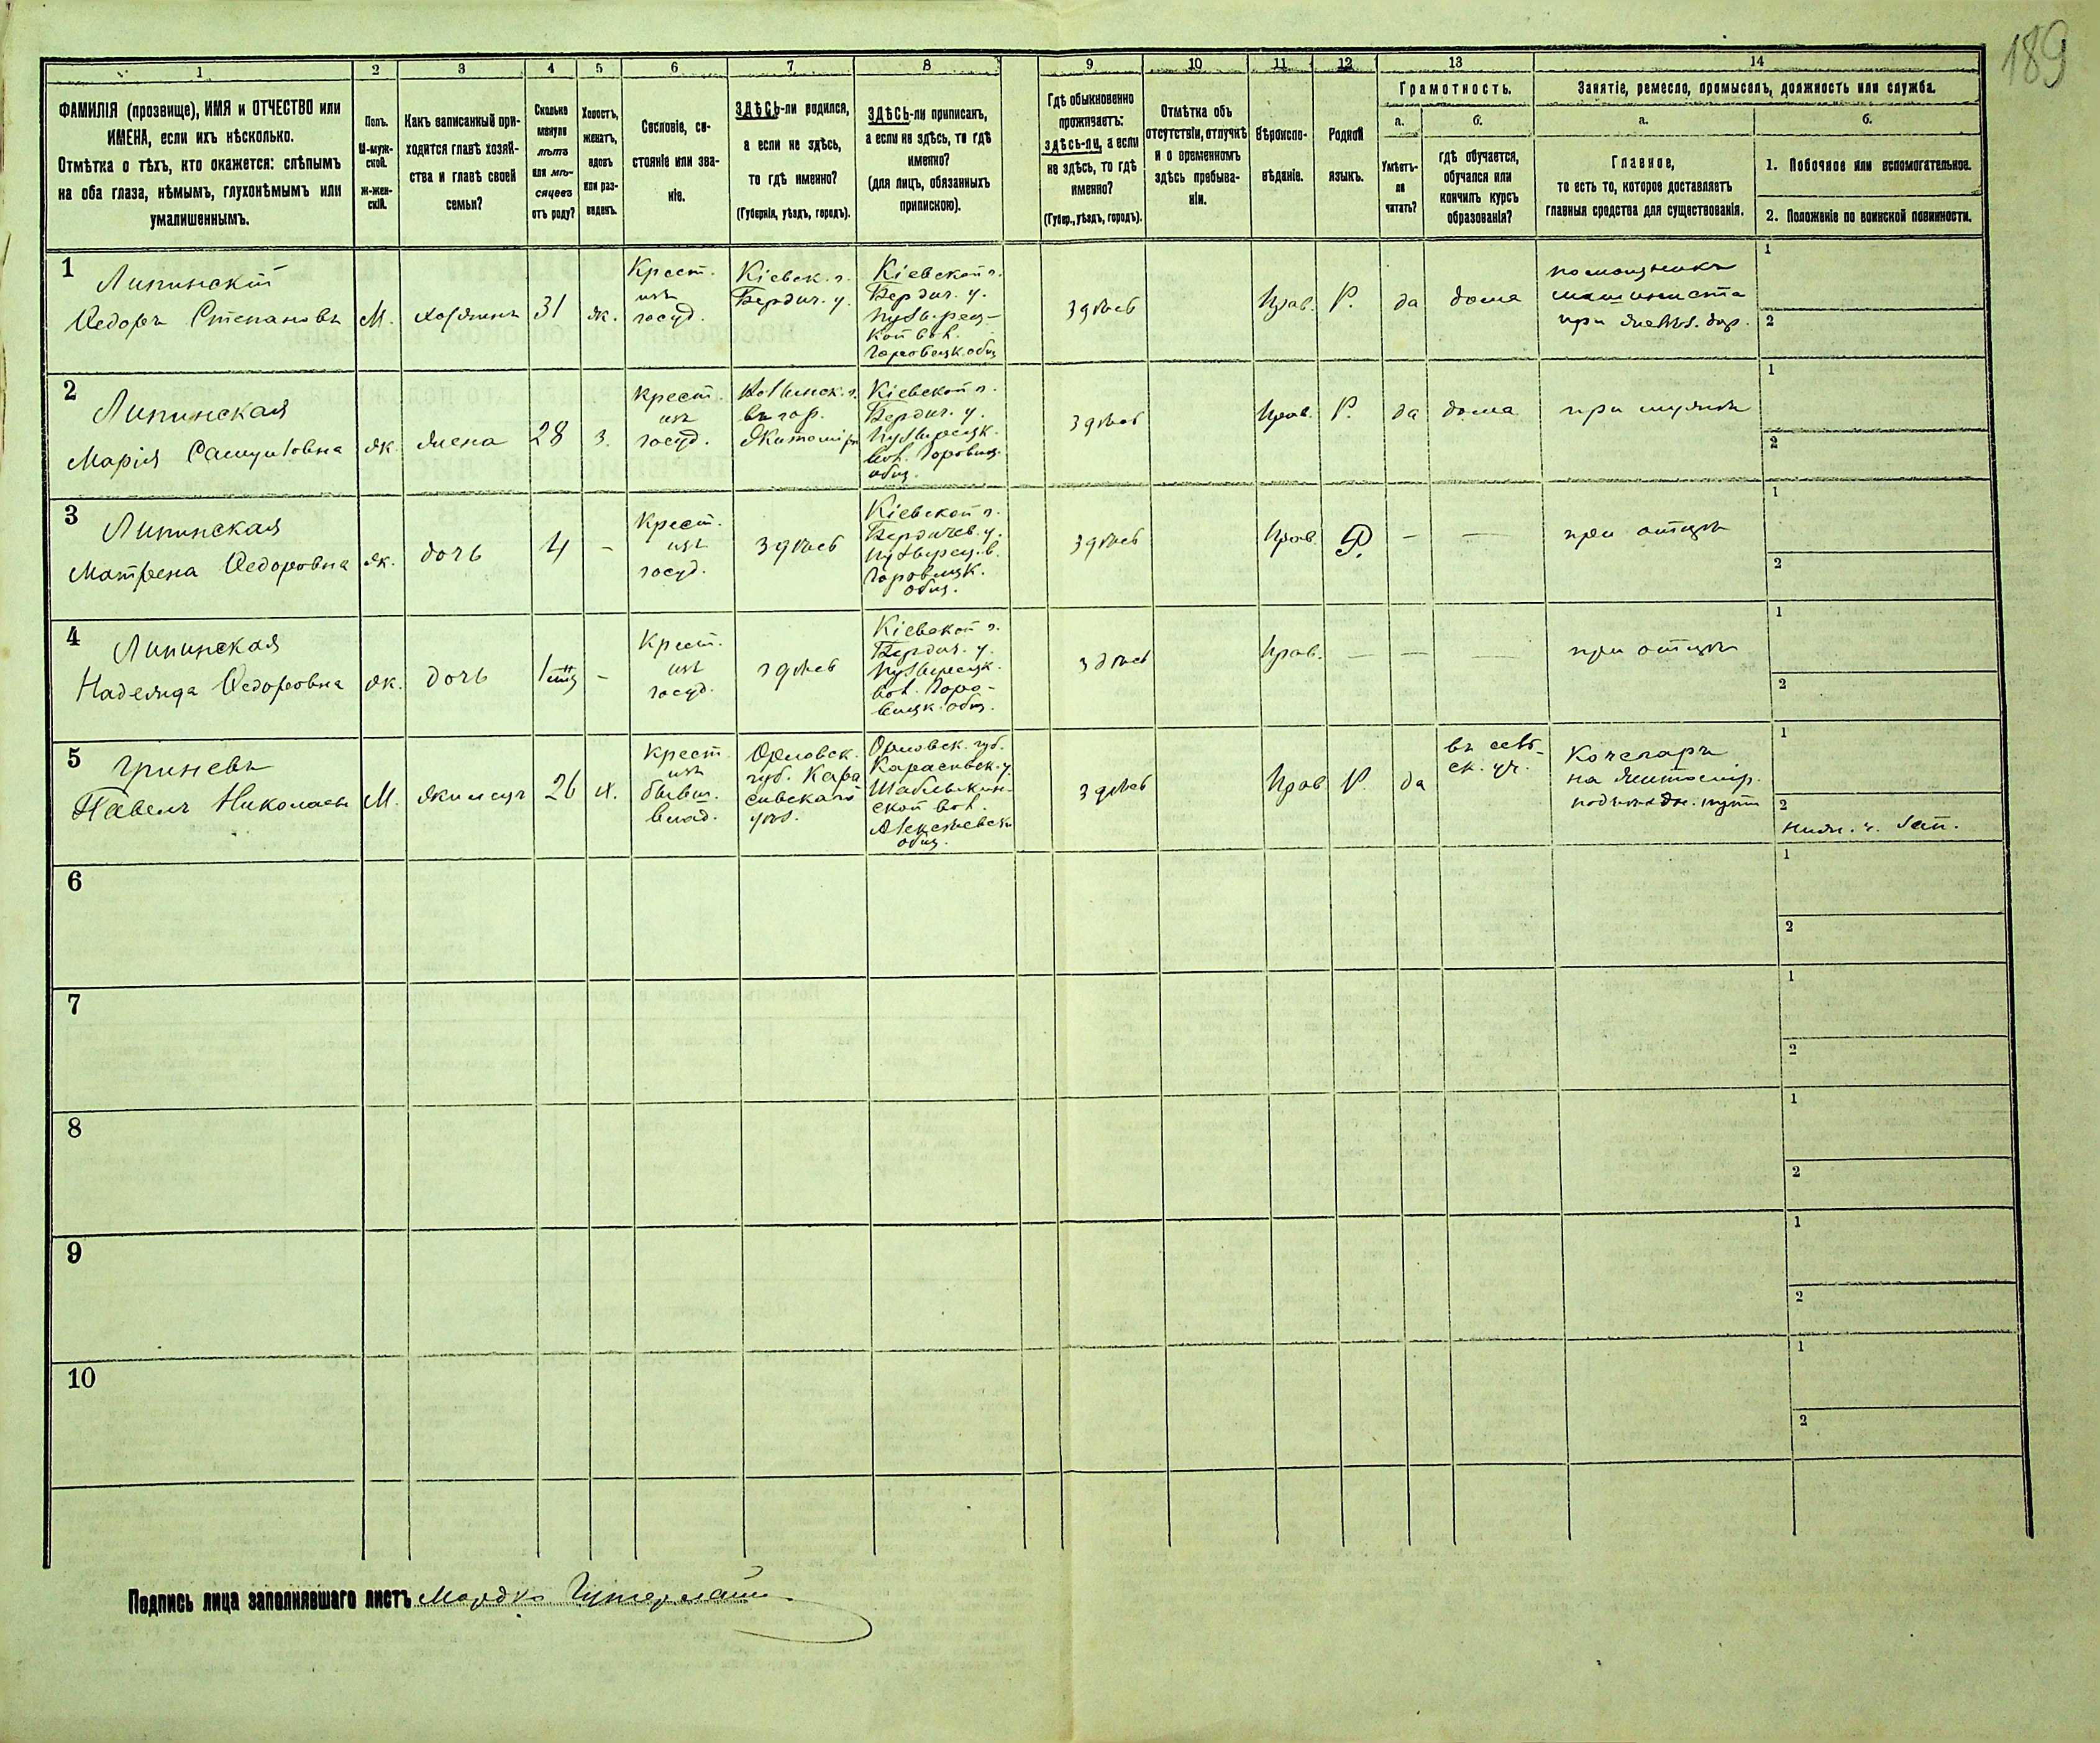 189
1 2 3 4 5 6 7 8 9 10 11 12 13 14
ФАМИЛІЯ (прозвище), ИМЯ и ОТЧЕСТВО или
ИМЕНА, если ихъ нѣсколько.
Отмѣтка о тѣхъ, кто окажется: слѣпымъ
на оба глаза, нѣмымъ, глухонѣмымъ или
умалишеннымъ.
Полъ.
М-муж-
ской.
ж-жен-
скій.
Какъ записанный при-
ходится главѣ хозяй-
ства и главѣ своей
семьи?
Сколько
минуло
лѣтъ
или мѣ-
сяцевъ
отъ роду?
Холостъ,
женатъ,
вдовъ
или раз-
веденъ.
Сословіе, со-
стояніе или зва-
ніе.
ЗДѢСЬ-ли родился,
а если не здѣсь,
то гдѣ именно?
(Губернія, уѣздъ, городъ).
ЗДѢСЬ-ли приписанъ,
а если не здѣсь, то гдѣ
именно?
(для лицъ, обязанныхъ
припискою).
Гдѣ обыкновенно
проживаетъ:
здѣсь-ли, а если
не здѣсь, то гдѣ
именно?
(Губер., уѣздъ, городъ).
Отмѣтка объ
отсутствіи, отлучкѣ
и о временномъ
здѣсь пребыва-
ніи.
Вѣроиспо-
вѣданіе.
Родной
языкъ.
Грамотность.
а.
Умѣетъ-
ли
читать?
б.
гдѣ обучается,
обучался или
кончилъ курсъ
образованія?
Занятіе, ремесло, промыселъ, должность или служба.
а.
Главное,
то есть то, которое доставляетъ
главныя средства для существованія.
б.
1. Побочное или вспомогательное.
2. Положеніе по воинской повинности.
1
Липинскій
Ѳедоръ Степановъ
М.
хозяинъ
31
ж.
Крест.
изъ
госуд.
Кіевск. г.
Бердич. у.
Кіевской г.
Бердич. у.
здѣсь
Прав.
Р.
да
дома
помощникъ
машиниста
при желѣз. дор.
1
2
2
Липинская
Марія Самуиловна
ж.
жена
28
з.
крест.
изъ
госуд.
Волынск. г.
въ гор.
Житомірѣ
Кіевской г.
Бердич. у.
общ.
здѣсь
Прав.
Р.
да
дома
при мужѣ
1
2
3
Липинская
Матрена Ѳедоровна
ж.
дочь
4
-
Крест.
изъ
госуд.
здѣсь
Кіевской г.
Бердичев. у.
общ.
здѣсь
Прав.
Р.
—
—
при отцѣ
1
2
4
Липинская
Надежда Ѳедоровна
ж.
дочь
-
Крест.
изъ
госуд.
здѣсь
Кіевской г.
Бердич. у.
здѣсь
Прав.
—
—
—
при отцѣ
1
2
5
Гриневъ
Павелъ Николаевъ
М.
жилецъ
26
х.
крест.
изъ
бывш.
влад.
Орловск.
губ. Кара
чевскаго
уѣз.
Орловск. губ.
Карачевск. у.
Шаблыкин-
ской вол.
общ.
здѣсь
Прав.
Р.
да
въ сель-
ск. уч.
Кочегаръ
на Житомір.
подъѣздн. пути
1
2
6
1
2
7
1
2
8
1
2
9
1
2
10
1
2
Подпись лица заполнявшаго листъ Мордко Гутерманъ